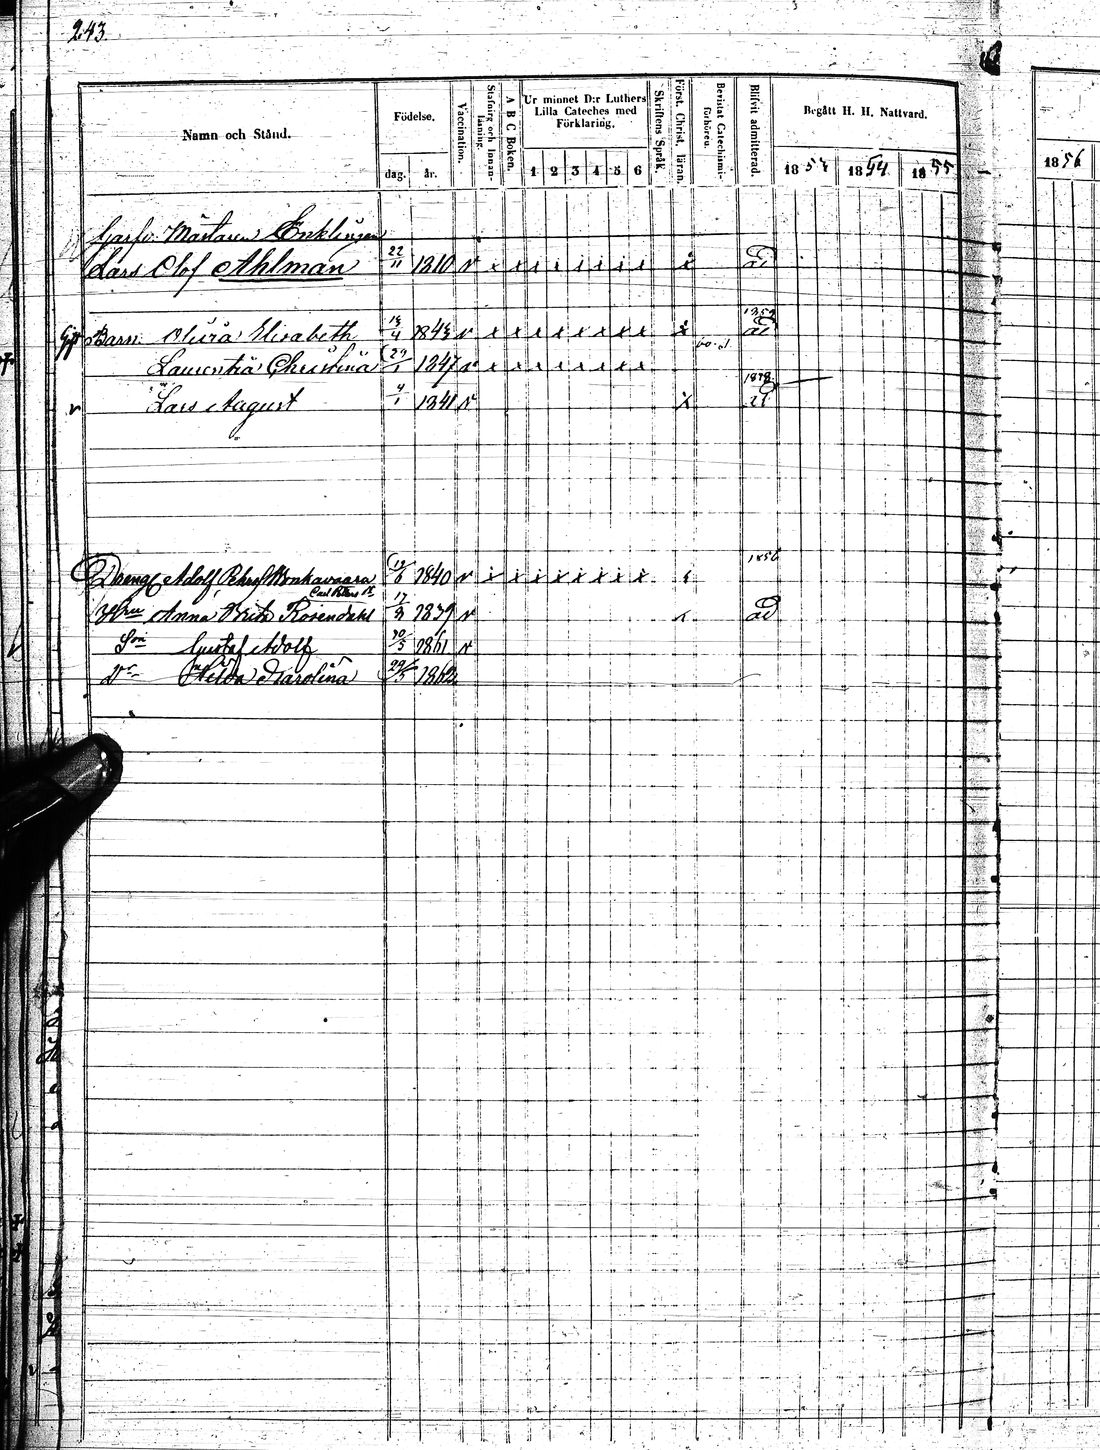 243.
Namn och Stånd.
Födelse.
dag. år.
Vaccination.
Stafning och Innanläsning.
A B C Boken.
Ur minnet D:r Luthers Lilla Cateches med Förklaring.
1 2 3 4 5 6
Skriftens Språk.
Först. Christ. läran.
Bevistat Catechismiförhören.
Blifvit admitterad.
Begått H. H. Nattvard.
1853 1854 1855
1856
Garfv. Mästaren Enklingen
Lars Olof Ahlman 22/11 1810 v x x x x x x x x x ad
1859
Gift Barn Olivia Elisabeth 1843 v x x x x x x x x x ad
Laurentia Christina 1847 v x x x x x x x x
1878
v Lars August 4/1 1841 v x ad
1856
Dreng Adolf Pehrsf Monkavaara 1840 v x x x x x x x x
Hru Anna Brita Rosendahl 17/8 1839 v ad
Sn Gustaf Adolf 1861 v
Dr Hilda Karolina 29/5 1862